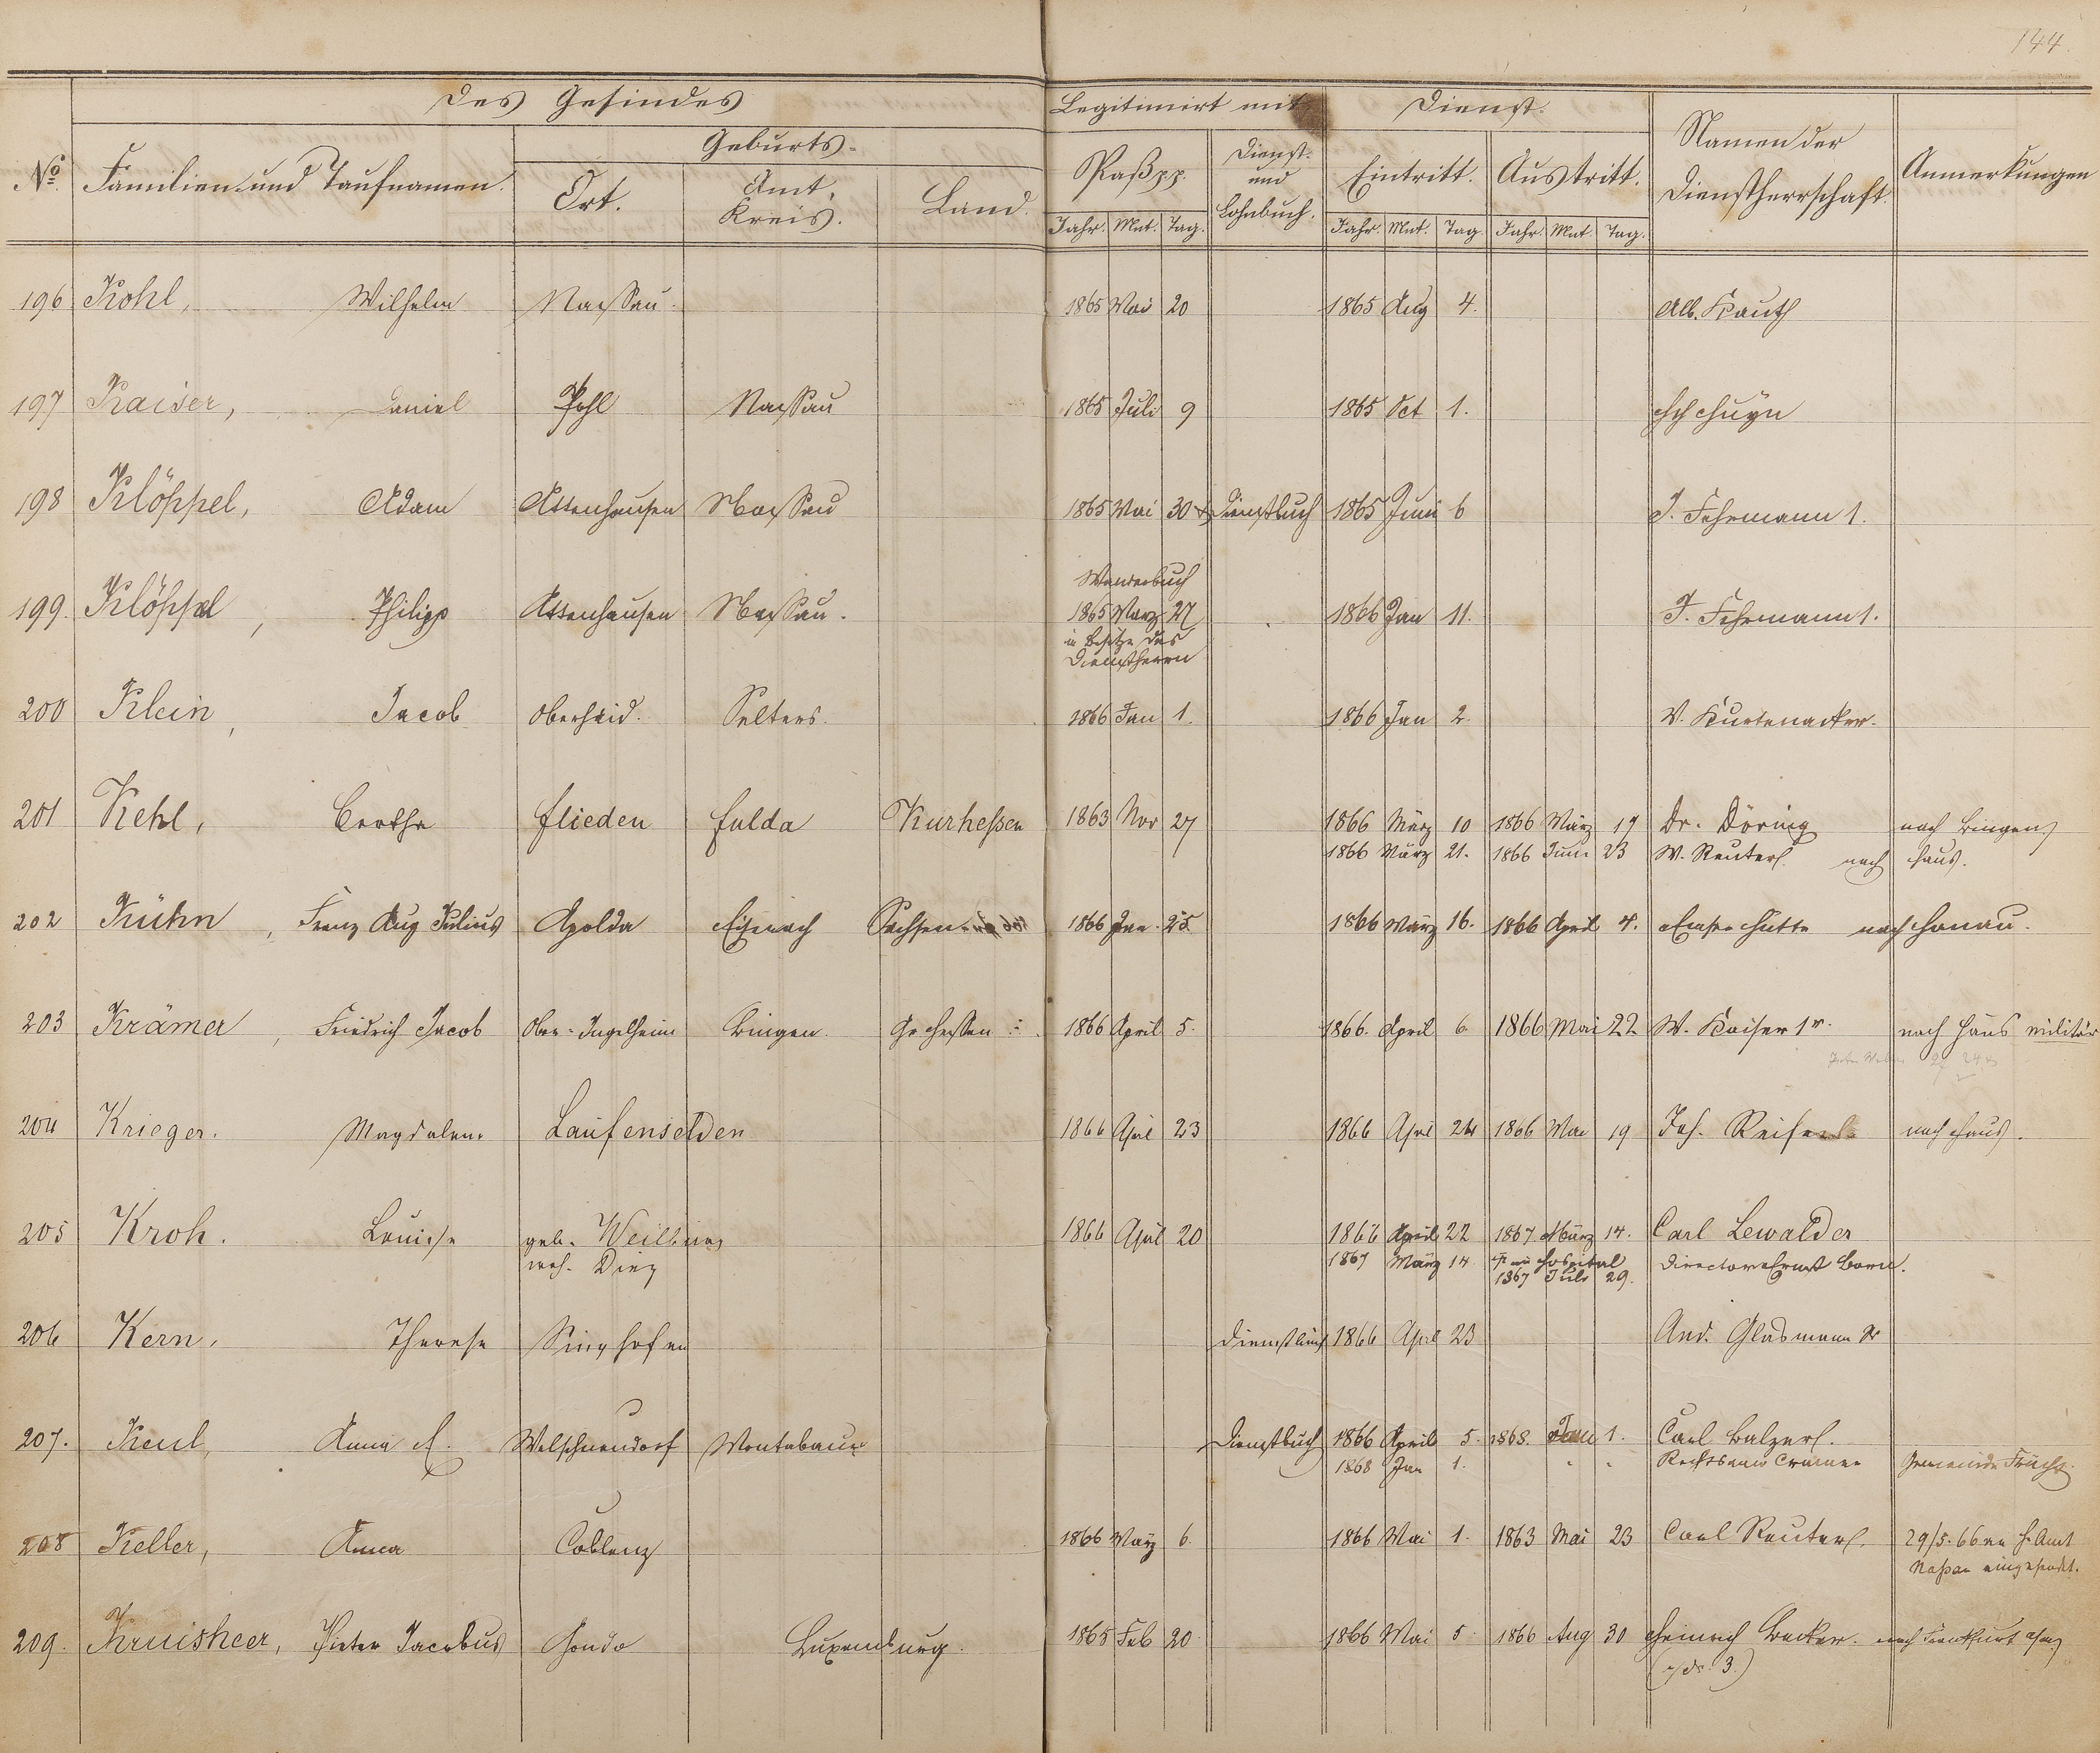 144.
Des Gesindes
Legitimirt mit
Dienst.
No. Familien- und Taufnamen.
Geburts-
Ort. Amt, Kreis. Land.
Paß pp. Dienst- und Lohnbuch.
Eintritt. Austritt.
Namen der Dienstherrschaft.
Anmerkungen
Jahr. Mnt. Tag. Jahr. Mnt. Tag. Jahr. Mnt. Tag.
196 Kohl, Wilhelm Nassau 1865 Mai 20 1865 Aug 4. Alb. Kauth
197 Kaiser, Daniel Pohl Nassau 1865 Juli 9 1865 Oct 1.
198 Klöppel, Adam Attenhausen Nassau 1865 Mai 30 Dienstbuch 1865 Juni 6 J. Fehrmann 1.
Wanderbuch
199. Klöppel, Philipp Attenhausen Nassau. 1865 März 27 1866 Jan 11. J. Fehrmann 1.
in Besitze des
Dienstherrn
200 Klein, Jacob Oberhaid. Selters. 1866 Jan 1. 1866 Jan 2. W. Kurtenacker.
201 Kehl, Bertha Flieden Fulda Kurhessen 1863 Nov 27 1866 März 10 1866 März 17 Dr. Döring nach Bingen
1866 März 21. 1866 Juni 23 W. Reuter nach Haus.
202 Kühn, Franz Aug Julius Apolda Eisenach Sachsen 1866 Jan. 25. 1866 März 16. 1866 April 4. Emser Hütte nach Hanau.
203 Krämer, Friedrich Jacob Ober-Ingelheim Bingen. Gr Hessen 1866 April 5. 1866. April 6 1866 Mai 22 W. Kaiser 1r. nach Haus militär
204 Krieger. Magdalene Laufenselden 1866 April 23 1866 April 24 1866 Mai 19 Joh. nach Haus.
205 Kroh. Louise geb. Weilburg 1866 April 20 1866 April 22 1867 März 14. Carl Lewalder
woh. Diez 1867 März 14 im Hospital Director Ernst Born.
1867 Juli 29.
206 Kern, Therese Singhofen Dienstbuch 1866 April 23 And. Glasmann
207. Keul, Anna Welschneudorf Montabaur Dienstbuch 1866 April 5. 1868. Jan 1. Carl Balzer
1868 Jan 1. " " Cramer Gemeinde Frücht.
208 Keller, Anna Coblenz 1866 März 6 1866 Mai 1. 1863 Mai 23 Carl Reuter 29/5. 66 an H. Amt
Nassau eingesandt.
209. Kruisheer, Pieter Jacobus Gonda Luxemburg. 1865 Feb 20 1866 Mai 5 1866 Aug 30 Heinrich Becker. nach Frankfurt a/m